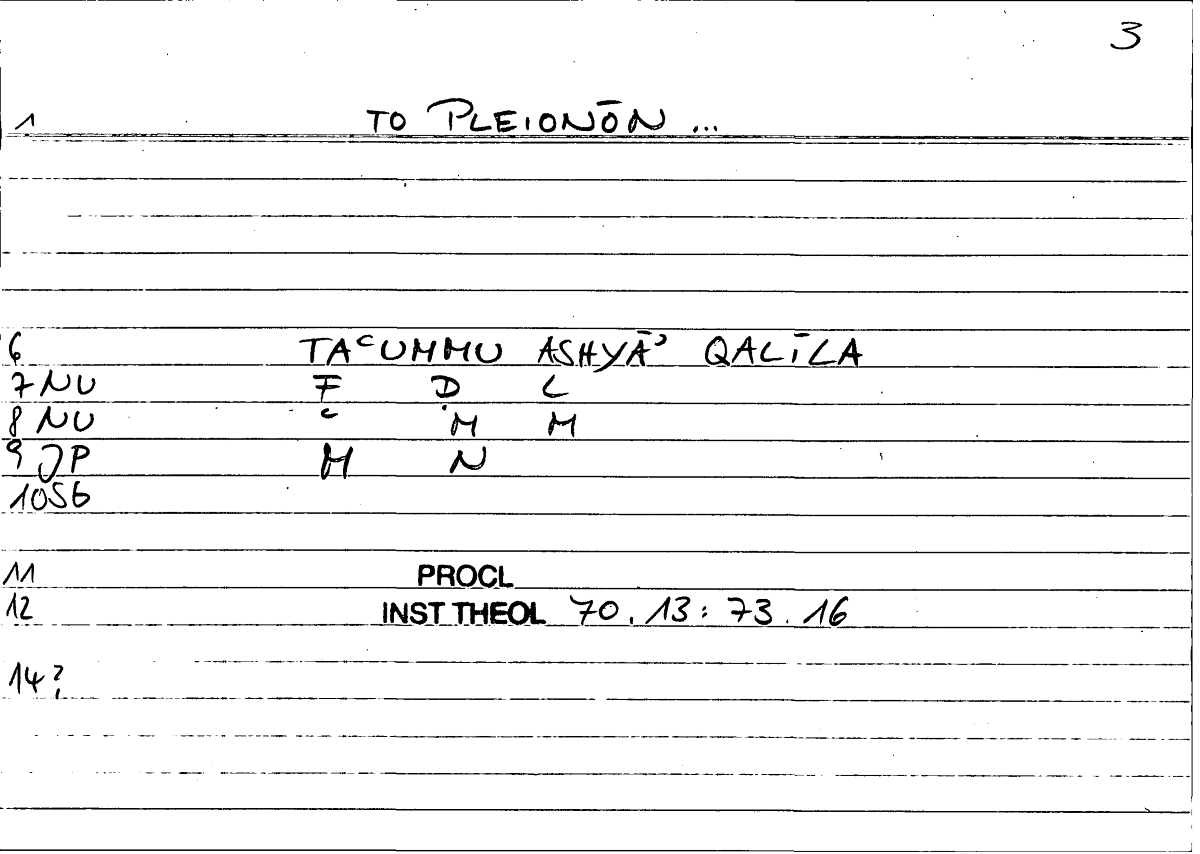 3
1 TO PLEIONŌN ...
6 TAᶜUMMU ASHYĀʾ QALĪLA
7 NU F D L
8 NU ᶜ M M
9 JP M N
10SG
11 PROCL
12 INST THEOL 70.13: 73.16
14?